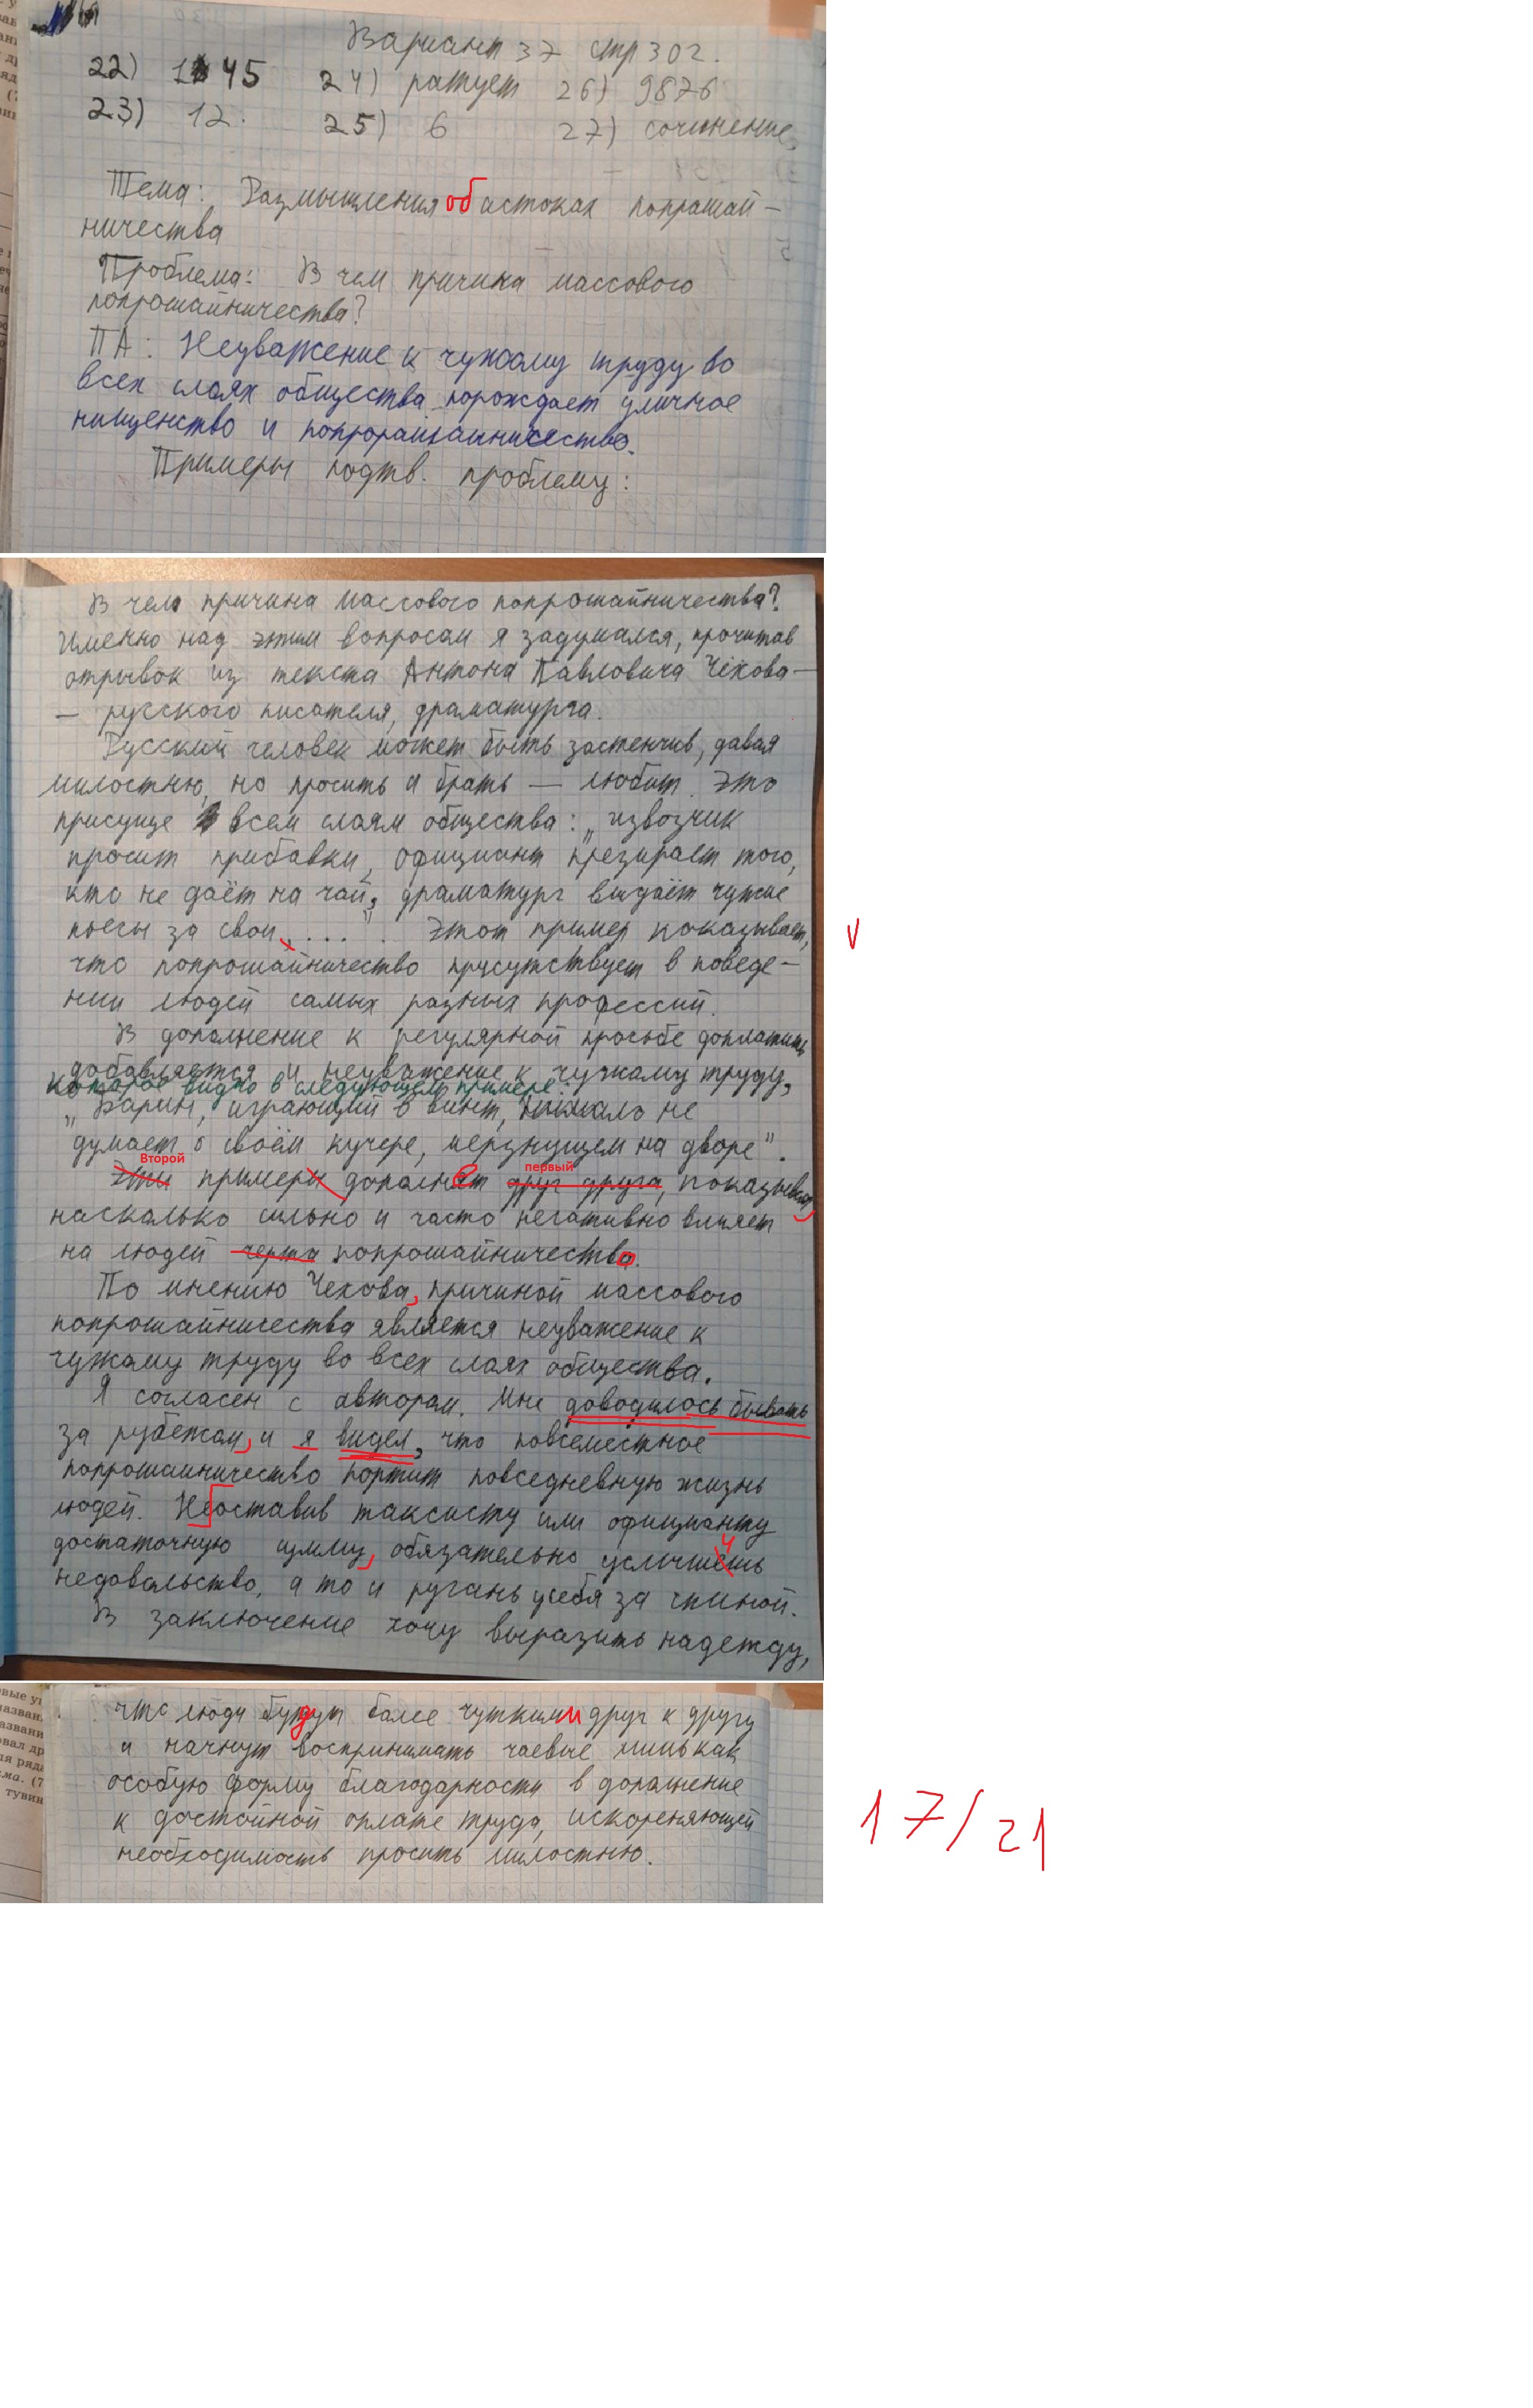 Вариант 37 стр 302.
22) 145 24) ратует 26) 9876
23) 12. 25) 6 27) сочинение.
Тема: Размышления об истоках попрошай-
ничества
Проблема: В чем причина массового
попрошайничества?
ПА: Неуважение к чужому труду во
всех слоях общества порождает уличное
нищенство и
Примеры подтв. проблему:
В чем причина массового попрошайничества?
Именно над этим вопросом я задумался, прочитав
отрывок из текста Антона Павловича Чехова —
— русского писателя, драматурга.
Русский человек может быть застенчив, давая
милостню, но просить и брать — любит. Это
присуще всем слоям общества: „извозчик
просит прибавки, официант презирает того,
кто не даёт на чай, драматург выдаёт чужие
пьесы за свои, ...". Этот пример показывает,
v
что попрошайничество присутствует в поведе-
нии людей самых разных профессий.
В дополнение к регулярной просьбе доплатить
добавляется и неуважение к чужому труду,
которое видно в следующем примере:
„Барин, играющий в винт, нимало не
думает о своём кучере, мерзнущем на дворе".
Второй первый
Эти примеры дополняет друг друга, показывая,
насколько сильно и часто негативно влияет
на людей черта попрошайничество.
По мнению Чехова, причиной массового
попрошайничества является неуважение к
чужому труду во всех слоях общества.
Я согласен с автором. Мне доводилось бывать
за рубежом, и я видел, что повсеместное
попрошайничество портит повседневную жизнь
людей. Не оставив таксисту или официанту
достаточную сумму, обязательно услышишь
недовольство, а то и ругань у себя за спиной.
В заключение хочу выразить надежду,
что люди будут более чуткими друг к другу
и начнут воспринимать чаевые лишь как
особую форму благодарности в дополнение
к достойной оплате труда, искореняющей
необходимость просить милостню.
17/21